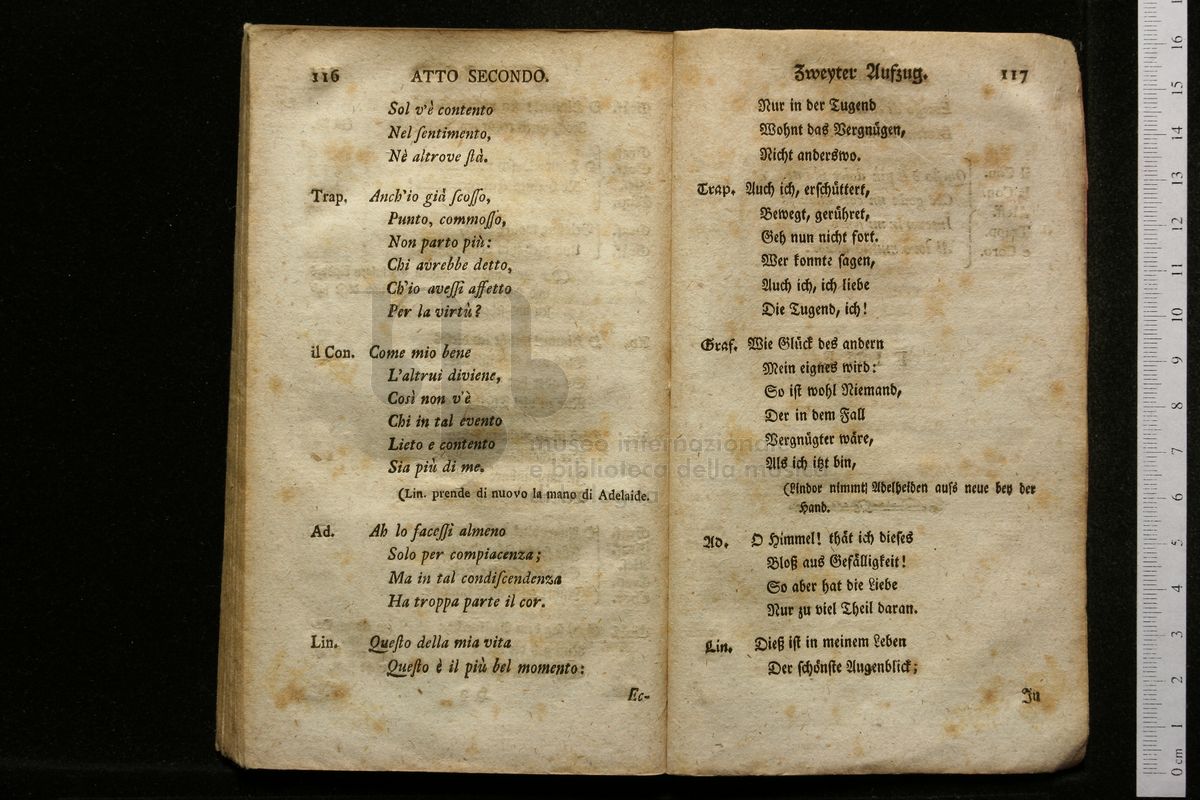 116 ATTO SECONDO.
Sol v'è contento
Nel ſentimento,
Nè altrove ſtà.
Trap. Anch'io già ſcoſſo,
Punto, commoſſo,
Non parto più:
Chi avrebbe detto,
Ch'io aveſſi affetto
Per la virtù?
il Con. Come mio bene
L'altrui diviene,
Così non v'è
Chi in tal evento
Lieto e contento
Sia più di me.
(Lin. prende di nuovo la mano di Adelaide.
Ad. Ah lo faceſſi almeno
Solo per compiacenza;
Ma in tal condiſcendenza
Ha troppa parte il cor.
Lin. Queſto della mia vita
Queſto è il più bel momento:
Ec-
Zweyter Aufzug. 117
Nur in der Tugend
Wohnt das Vergnügen,
Nicht anderswo.
Trap. Auch ich, erſchüttert,
Bewegt, gerühret,
Geh nun nicht fort.
Wer konnte ſagen,
Auch ich, ich liebe
Die Tugend, ich!
Graf. Wie Glück des andern
Mein eignes wird:
So iſt wohl Niemand,
Der in dem Fall
Vergnügter wäre,
Als ich itzt bin,
(Lindor nimmt Adelheiden aufs neue bey der
Hand.
Ad. O Himmel! thät ich dieſes
Bloß aus Gefälligkeit!
So aber hat die Liebe
Nur zu viel Theil daran.
Lin. Dieß iſt in meinem Leben
Der ſchönſte Augenblick;
In
museo internazionale
e biblioteca della musica
0 cm 1 2 3 4 5 6 7 8 9 10 11 12 13 14 15 16